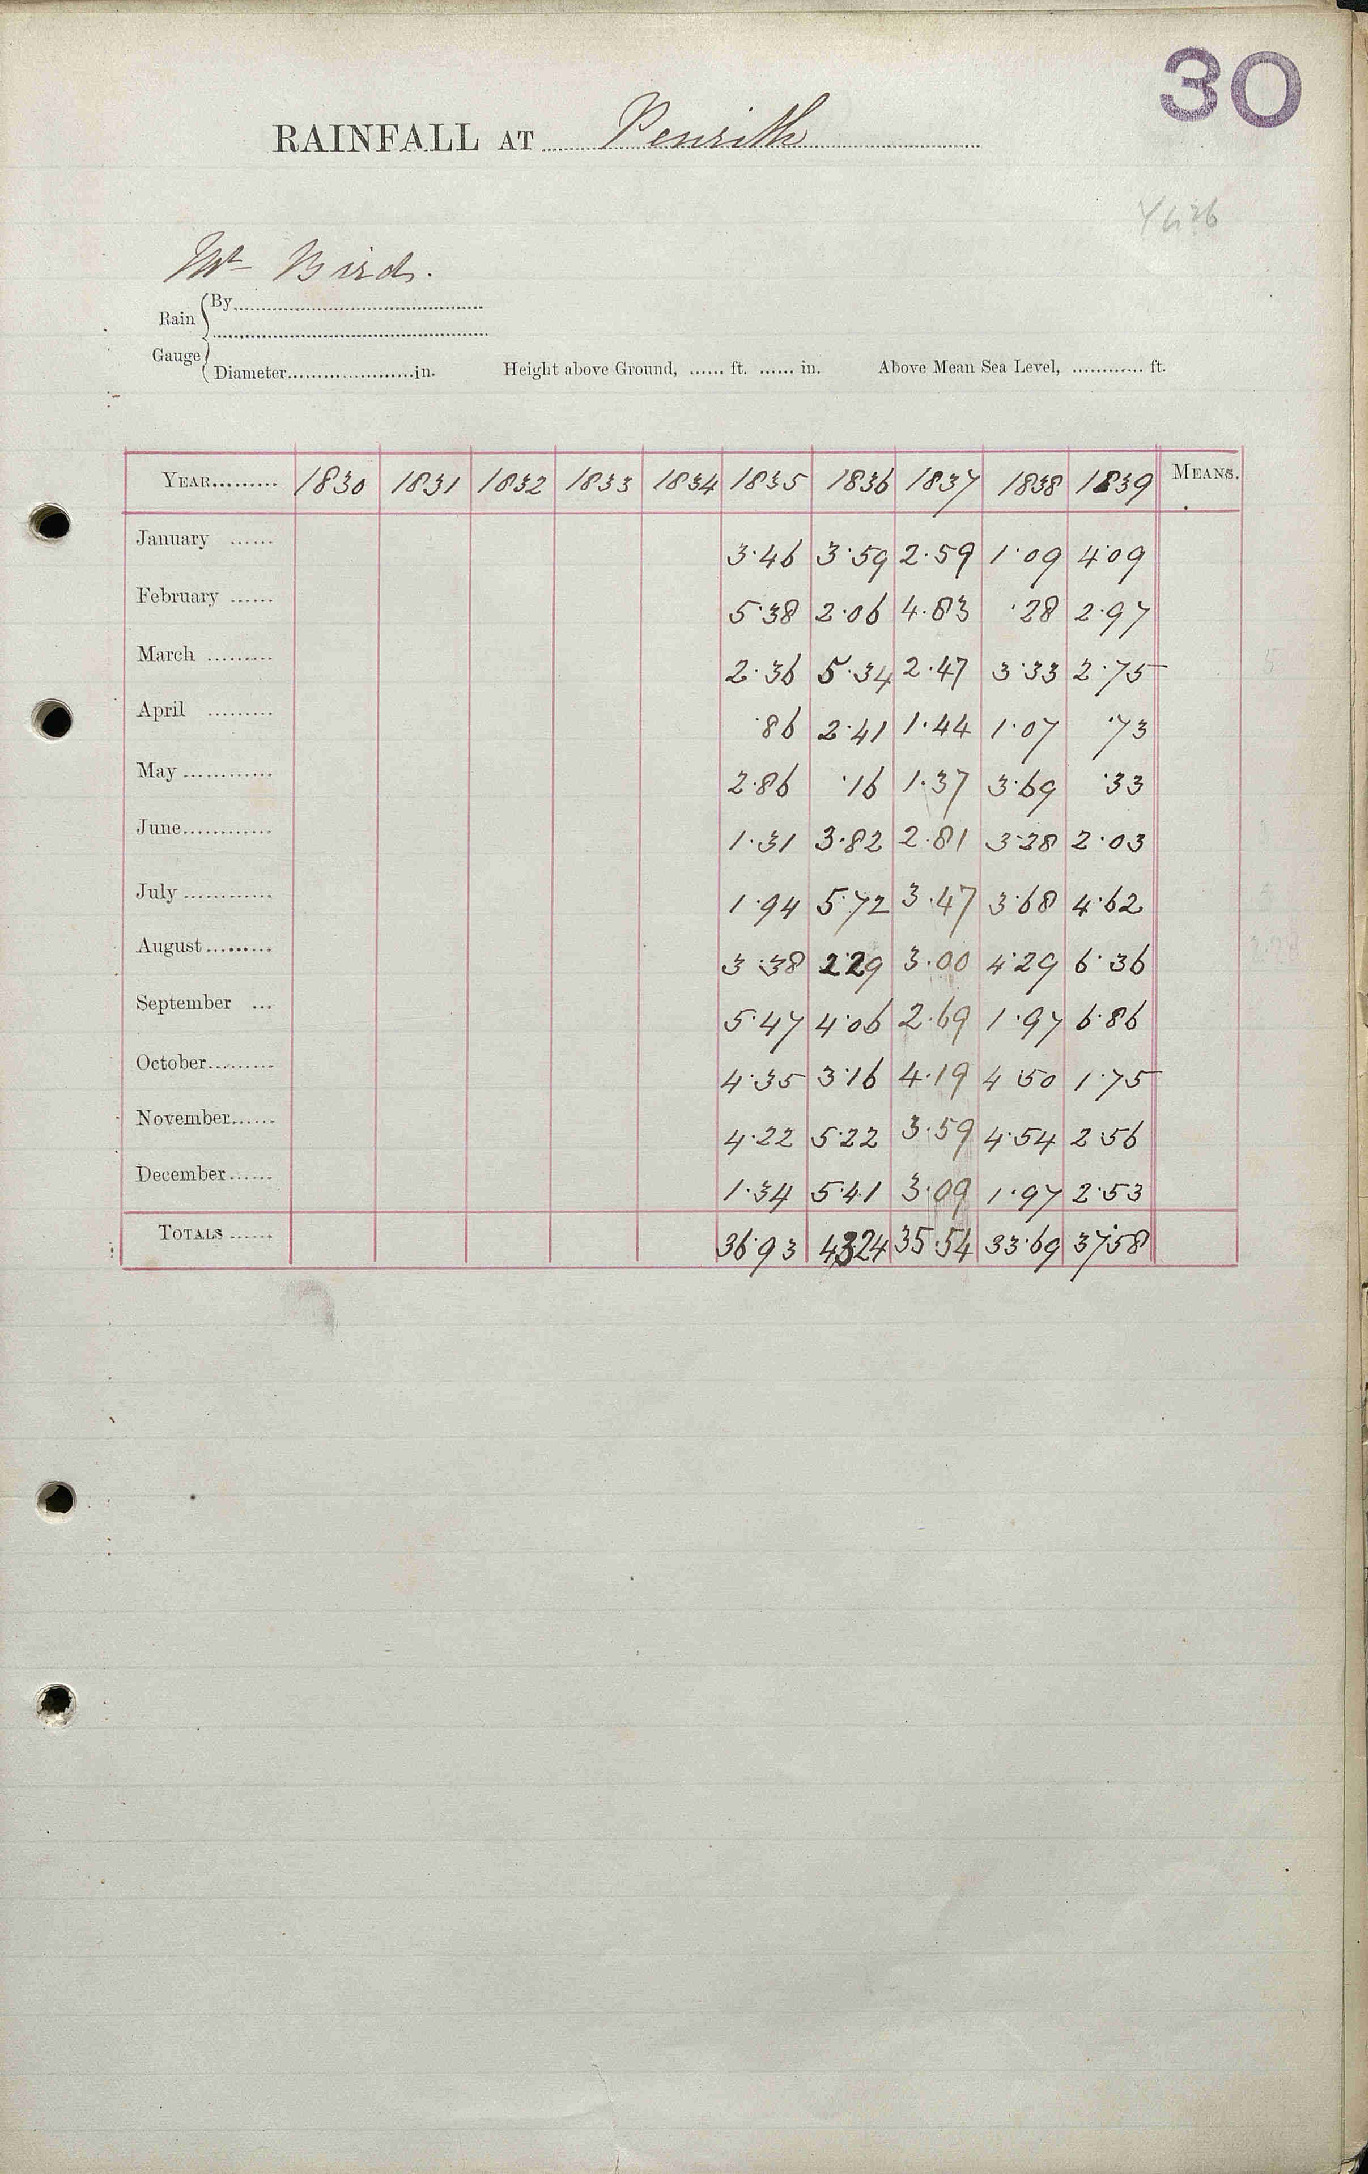 30
RAINFALL AT Penrith
Mr Bird.
Rain Gauge
By
Diameter in. Height above Ground, ...... ft. ...... in. Above Mean Sea Level, ............ ft.
YEAR......... 1830 1831 1832 1833 1834 1835 1836 1837 1838 1839 MEANS.
January ...... 3·46 3·59 2·59 1·09 4·09
February ...... 5·38 2·06 4·83 ·28 2·97
March ......... 2·36 5·34 2·47 3·33 2·75
April ......... ·86 2·41 1·44 1·07 ·73
May ............ 2·86 ·16 1·37 3·69 ·33
June............ 1·31 3·82 2·81 3·28 2·03
July ............ 1·94 5·72 3·47 3·68 4·62
August......... 3·38 2·29 3·00 4·29 6·36
September ... 5·47 4·06 2·69 1·97 6·86
October......... 4·35 3·16 4·19 4·50 1·75
November...... 4·22 5·22 3·59 4·54 2·56
December...... 1·34 5·41 3·09 1·97 2·53
TOTALS ...... 36·93 43·24 35·54 33·69 37·58